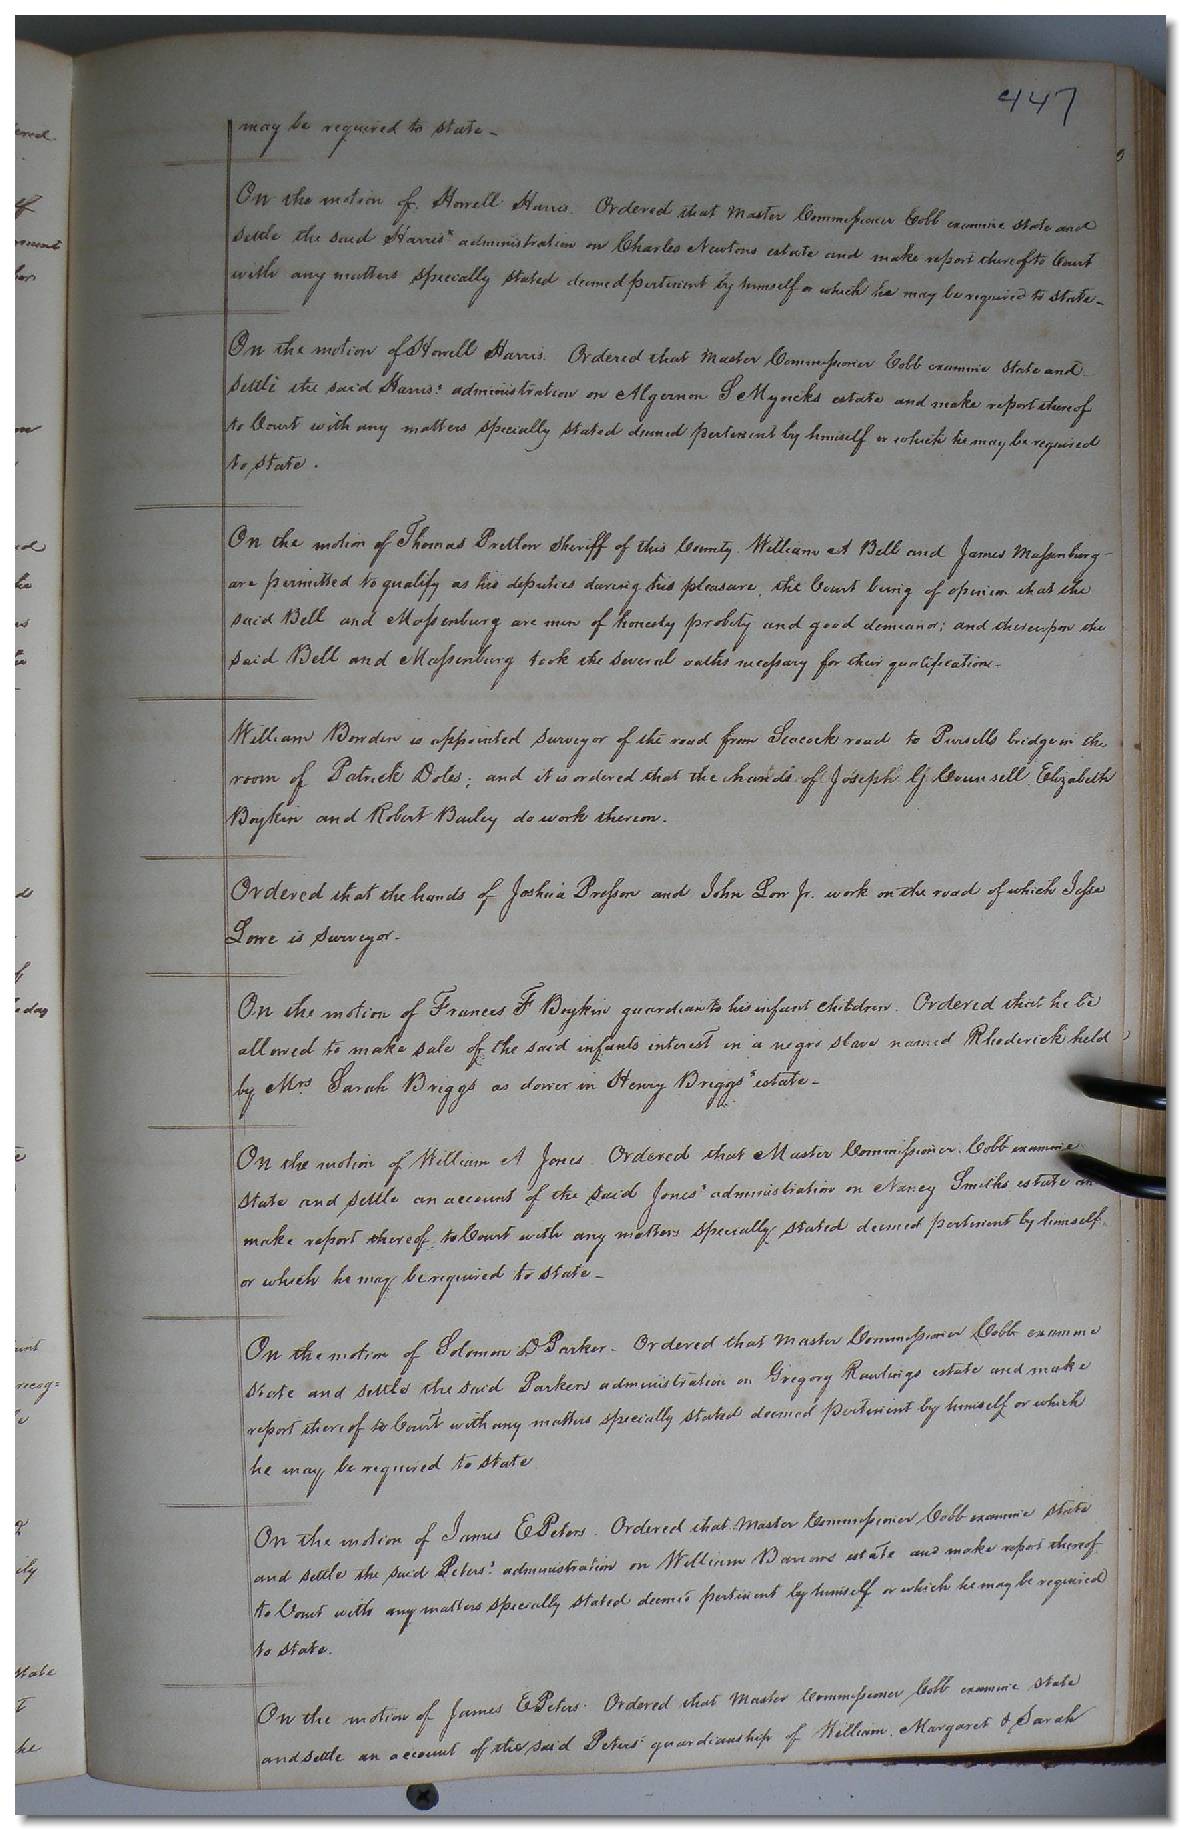 447
may be required to state -
On the motion of Howell Harris. Ordered that Master Commissioner Cobb examine state and
settle the said Harris' administration on Charles Newtons estate and make report thereof to Court
with any matters specially stated deemed pertinent by himself or which he may be required to state -
On the motion of Howell Harris. Ordered that Master Commissioner Cobb examine state and
settle the said Harris' administration on Algernon S Myricks estate and make report thereof
to Court with any matters specially stated deemed pertinent by himself or which he may be required
to state.
On the motion of Thomas Pretlow Sheriff of this County. William A Bell and James Massenburg
are permitted to qualify as his deputies during his pleasure, the Court being of opinion that the
said Bell and Massenburg are men of honesty probity and good demeanor; and thereupon the
said Bell and Massenburg took the several oaths necessary for their qualification -
William Bowden is appointed surveyor of the road from Seacock road to Pursells bridge in the
room of Patrick Doles; and it is ordered that the hands of Joseph G Counsell Elizabeth
Boykin and Robert Bailey do work thereon.
Ordered that the hands of Joshua Presson and John Low Jr. work on the road of which Jesse
Lowe is surveyor -
On the motion of Frances F Boykin guardian to his infant children. Ordered that he be
allowed to make sale of the said infants interest in a negro slave named Rhoderick held
by Mrs. Sarah Briggs as dower in Henry Briggs' estate -
On the motion of William A Jones. Ordered that Master Commissioner Cobb examine
state and settle an account of the said Jones' administration on Nancy Smiths estate an
make report thereof to Court with any matters specially stated deemed pertinent by himself
or which he may be required to state -
On the motion of Solomon D Parker - Ordered that Master Commissioner Cobb examine
state and settle the said Parkers administration on Gregory Rawlings estate and make
report thereof to Court with any matters specially stated deemed pertinent by himself or which
he may be required to state
On the motion of James E Peters. Ordered that Master Commissioner Cobb examine state
and settle the said Peters' administration on William Barrows estate and make report thereof
to Court with any matters specially stated deemed pertinent by himself or which he may be required
to state.
On the motion of James E Peters. Ordered that Master Commissioner Cobb examine state
and settle an account of the said Peters' guardianship of William, Margaret & Sarah